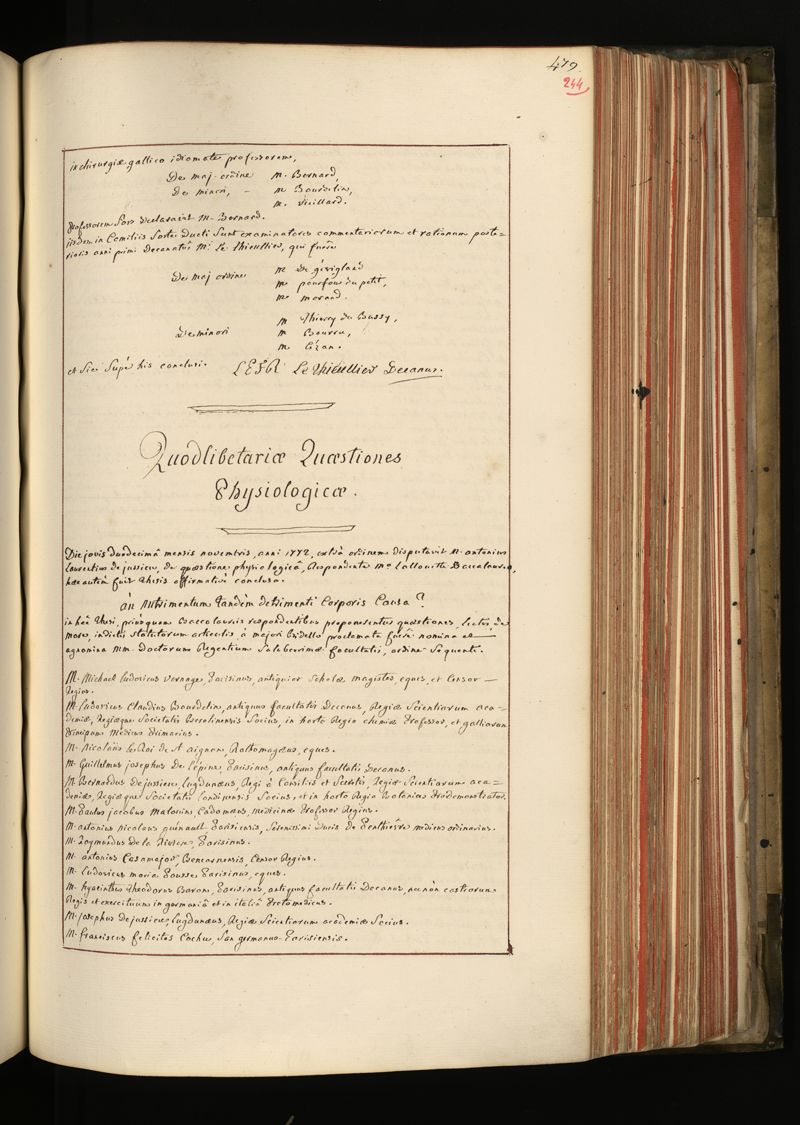 479.
244
in chirurgiæ gallico idiomate professorem,
De maj. ordine M. Bernard,
De minori, - M Bourdelin,
M. vieillard.
Professorem Sors declaravit M. Bernard.
jisdem in Comitiis Sorte ducti Sunt examinatores commentariorum et rationum poste=
rioris anni primi Decanatûs Mi. Le Thieullier, qui fuere
De maj ordine M De gévigland
M pourfour du petit,
M morand.
De minori M Thierry du Bussy,
M Bourru,
M Cézan.
et sic Supèr his conclusi. LESR Le Thieullier Decanus.
Quodlibetariæ Quæstiones
Physiologicæ.
Die jovis duodecimâ mensis novembris, anni 1772, extrà ordinem disputavit M. antonius
Laurentius de jussieu, de quæstione physiologicâ, Respondente Mo Lallouette Baccalaureo,
hæc autèm fuit thesis affirmativè conclusa.
àn Nutrimentum tandèm detrimenti Corporis Causa?
in hâc thesi, priùsquam Baccalaureis respondentibus proponerentur quæstiones, Lectis de
more, indictis statutorum articulis, à majori bidello proclamata fuere nomina et
agnomina MM. doctorum Regentium Saluberrimæ facultatis, ordine Sequenti.
M. Michael Ludovicus Vernage, Parisinus, antiquior Scholæ magister, eques, et Censor
Regius.
M. Ludovicus Claudius Bourdelin, antiquus facultatis Decanus, Regiæ Scientiarum aca=
demiæ, Regiæque Societatis Berolinensis Socius, in horto Regio chemiæ Professor, et galliarum
Principum Medicus Primarius.
M. Nicolaus Le Roi de St aignan, Rothomagæus, eques.
M. Guillelmus josephus De Lépine, Parisinus, antiquus facultatis Decanus.
M. Bernardus De jussieu, Lugdunæus, Regi à Consiliis et Secretis, Regiæ Scientiarum aca=
demiæ, Regiæque Societatis Londinensis Socius, et in horto Regio Botanices Prodemonstrator.
M. Paulus jacobus Malouin, Cadomæus, medicinæ Professor Regius.
M. antonius nicolaus guénault Parisiensis, Serenissimi Ducis de Penthièvre medicus ordinarius.
M. Raymundus de la Riviere, Parisinus.
M. antonius Casamajor, Bencarnensis, Censor Regius.
M. Ludovicus maria Pousse, Parisinus, eques.
M. hyacinthus Theodorus Baron, Parisinus, antiquus facultatis Decanus, necnòn castrorum
Regis et exercituum in germaniâ et in italiâ Protomedicus.
M. josephus de jussieu, Lugdunæus, Regiæ Scientiarum academiæ Socius.
M. franciscus felicitas Cochu, San germanus-Parisiensis.